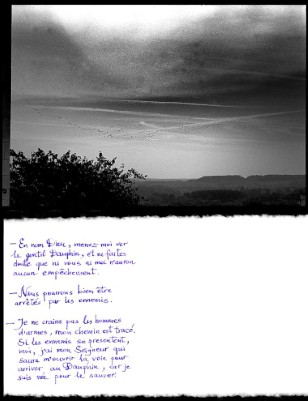 — En nom Dieu, menez-moi ver
le gentil Dauphin, et ne faites
doute que ni vous ni moi n'aurons
aucun empêchement.
— Nous pourrons bien être
arrêtés par les ennemis.
— Je ne crains pas les hommes
d'armes, mon chemin est tracé.
Si les ennemis se présentent,
moi, j'ai mon Seigneur qui
saura m'ouvrir la voie pour
arriver au Dauphin, car je
suis née pour le sauver.